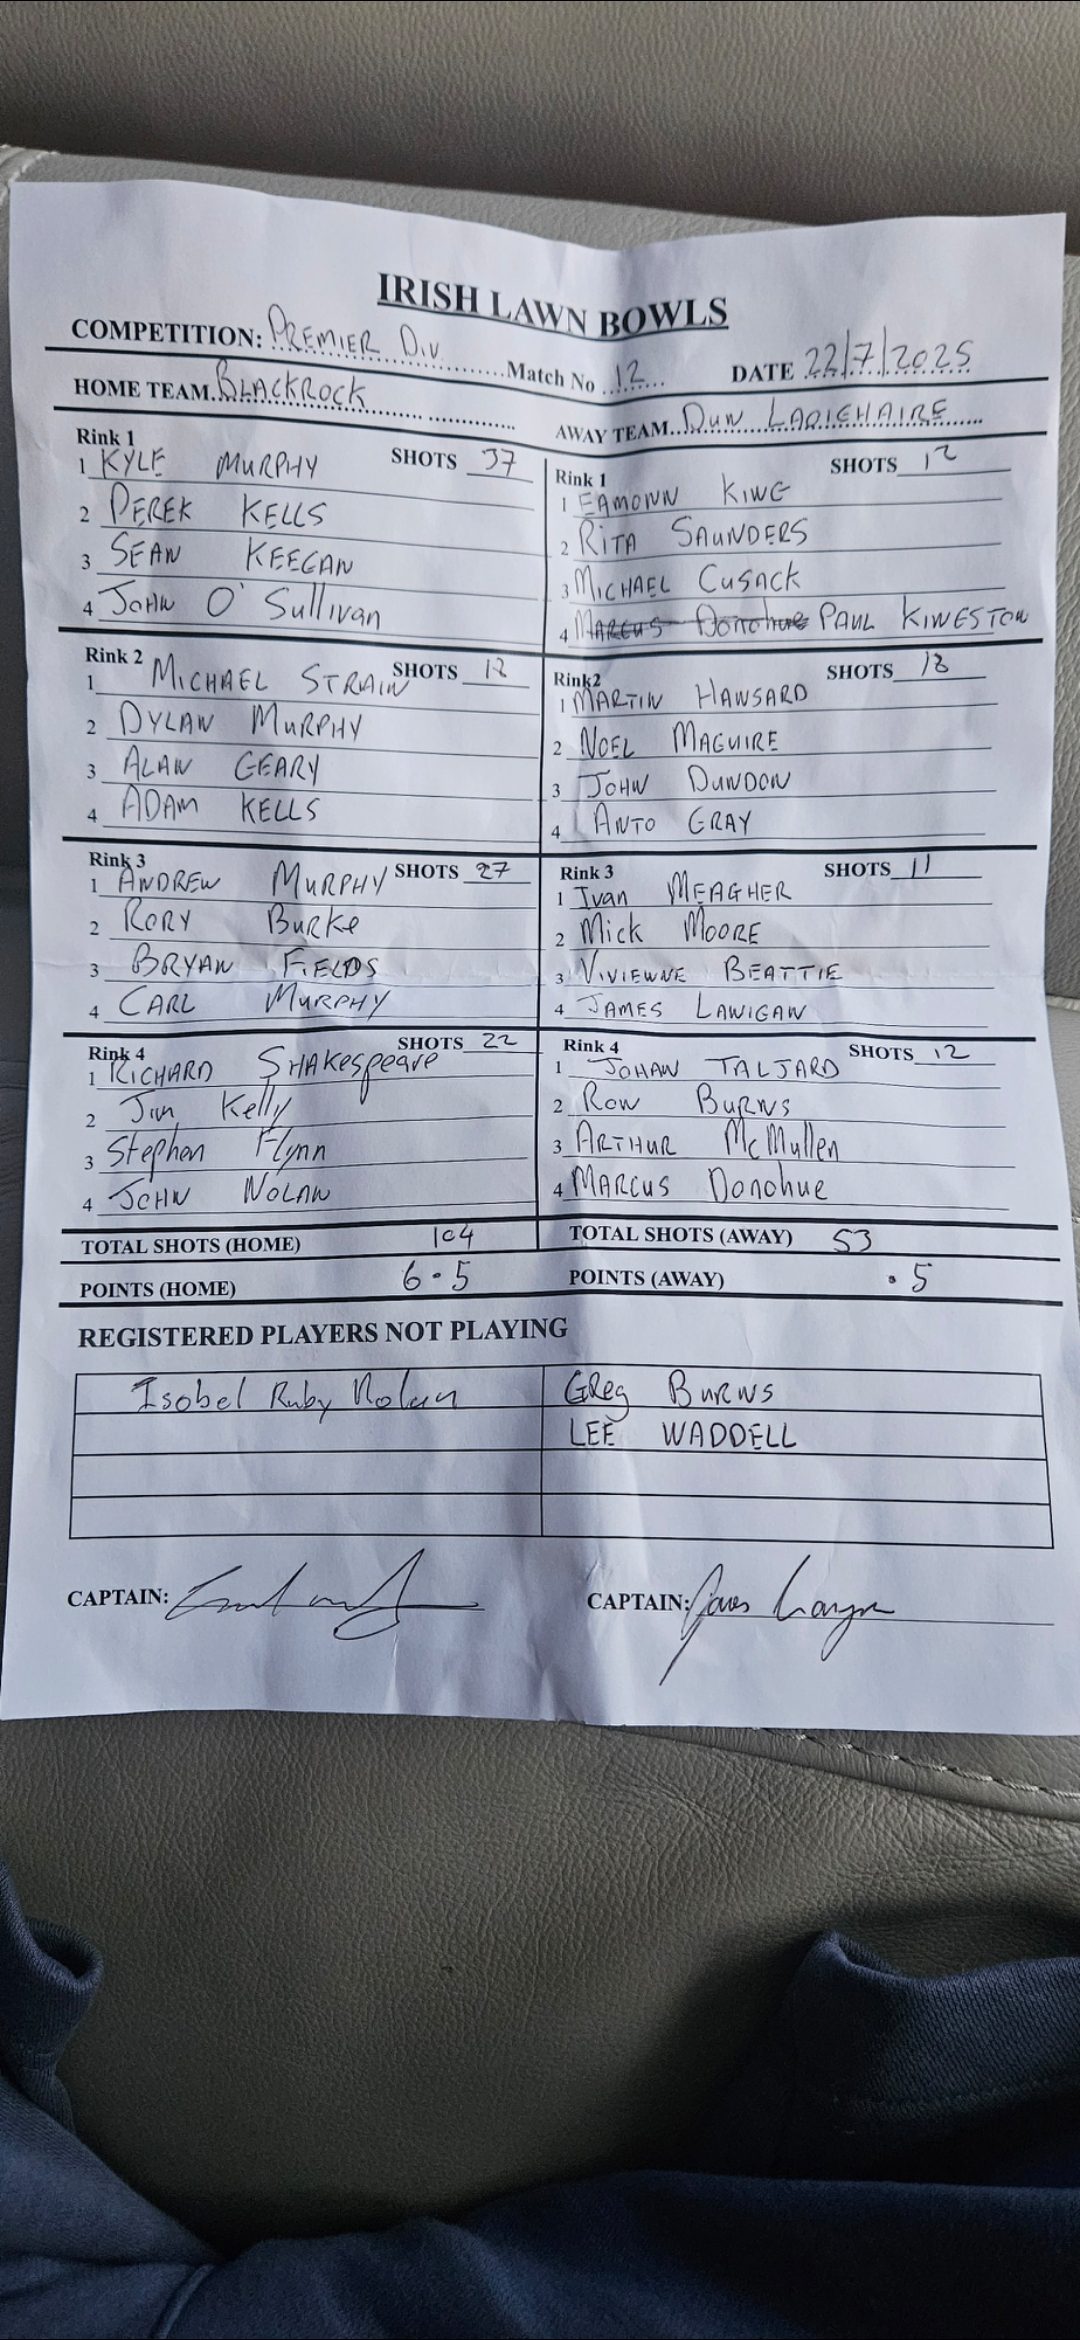 IRISH LAWN BOWLS
COMPETITION: PREMIER DIV Match No 12 DATE 22/7/2025
HOME TEAM BLACKROCK AWAY TEAM DUN LAOIGHAIRE
Rink 1 SHOTS 37
1 KYLE MURPHY
2 DEREK KELLS
3 SEAN KEEGAN
4 JOHN O'Sullivan
Rink 1 SHOTS 12
1 EAMONN KING
2 RITA SAUNDERS
3 MICHAEL CUSACK
4 MARCUS Donohue PAUL KINGSTON
Rink 2 SHOTS 18
1 MICHAEL STRAIN
2 DYLAN MURPHY
3 ALAN GEARY
4 ADAM KELLS
Rink2 SHOTS 18
1 MARTIN HANSARD
2 NOEL MAGUIRE
3 JOHN DUNDON
4 ANTO GRAY
Rink 3 SHOTS 27
1 ANDREW MURPHY
2 RORY Burke
3 BRYAN FIELDS
4 CARL MURPHY
Rink 3 SHOTS 11
1 Ivan MEAGHER
2 Mick MOORE
3 VIVIENNE BEATTIE
4 JAMES LANIGAN
Rink 4 SHOTS 22
1 RICHARD SHAKespeare
2 Jim Kelly
3 Stephen Flynn
4 JOHN NOLAN
Rink 4 SHOTS 12
1 JOHAN TALJARD
2 RON BURNS
3 ARTHUR McMullen
4 MARCUS Donohue
TOTAL SHOTS (HOME) 104 TOTAL SHOTS (AWAY) 53
POINTS (HOME) 6.5 POINTS (AWAY) .5
REGISTERED PLAYERS NOT PLAYING
Isobel Ruby Nolan GReg BURNS
LEE WADDELL
CAPTAIN: CAPTAIN: